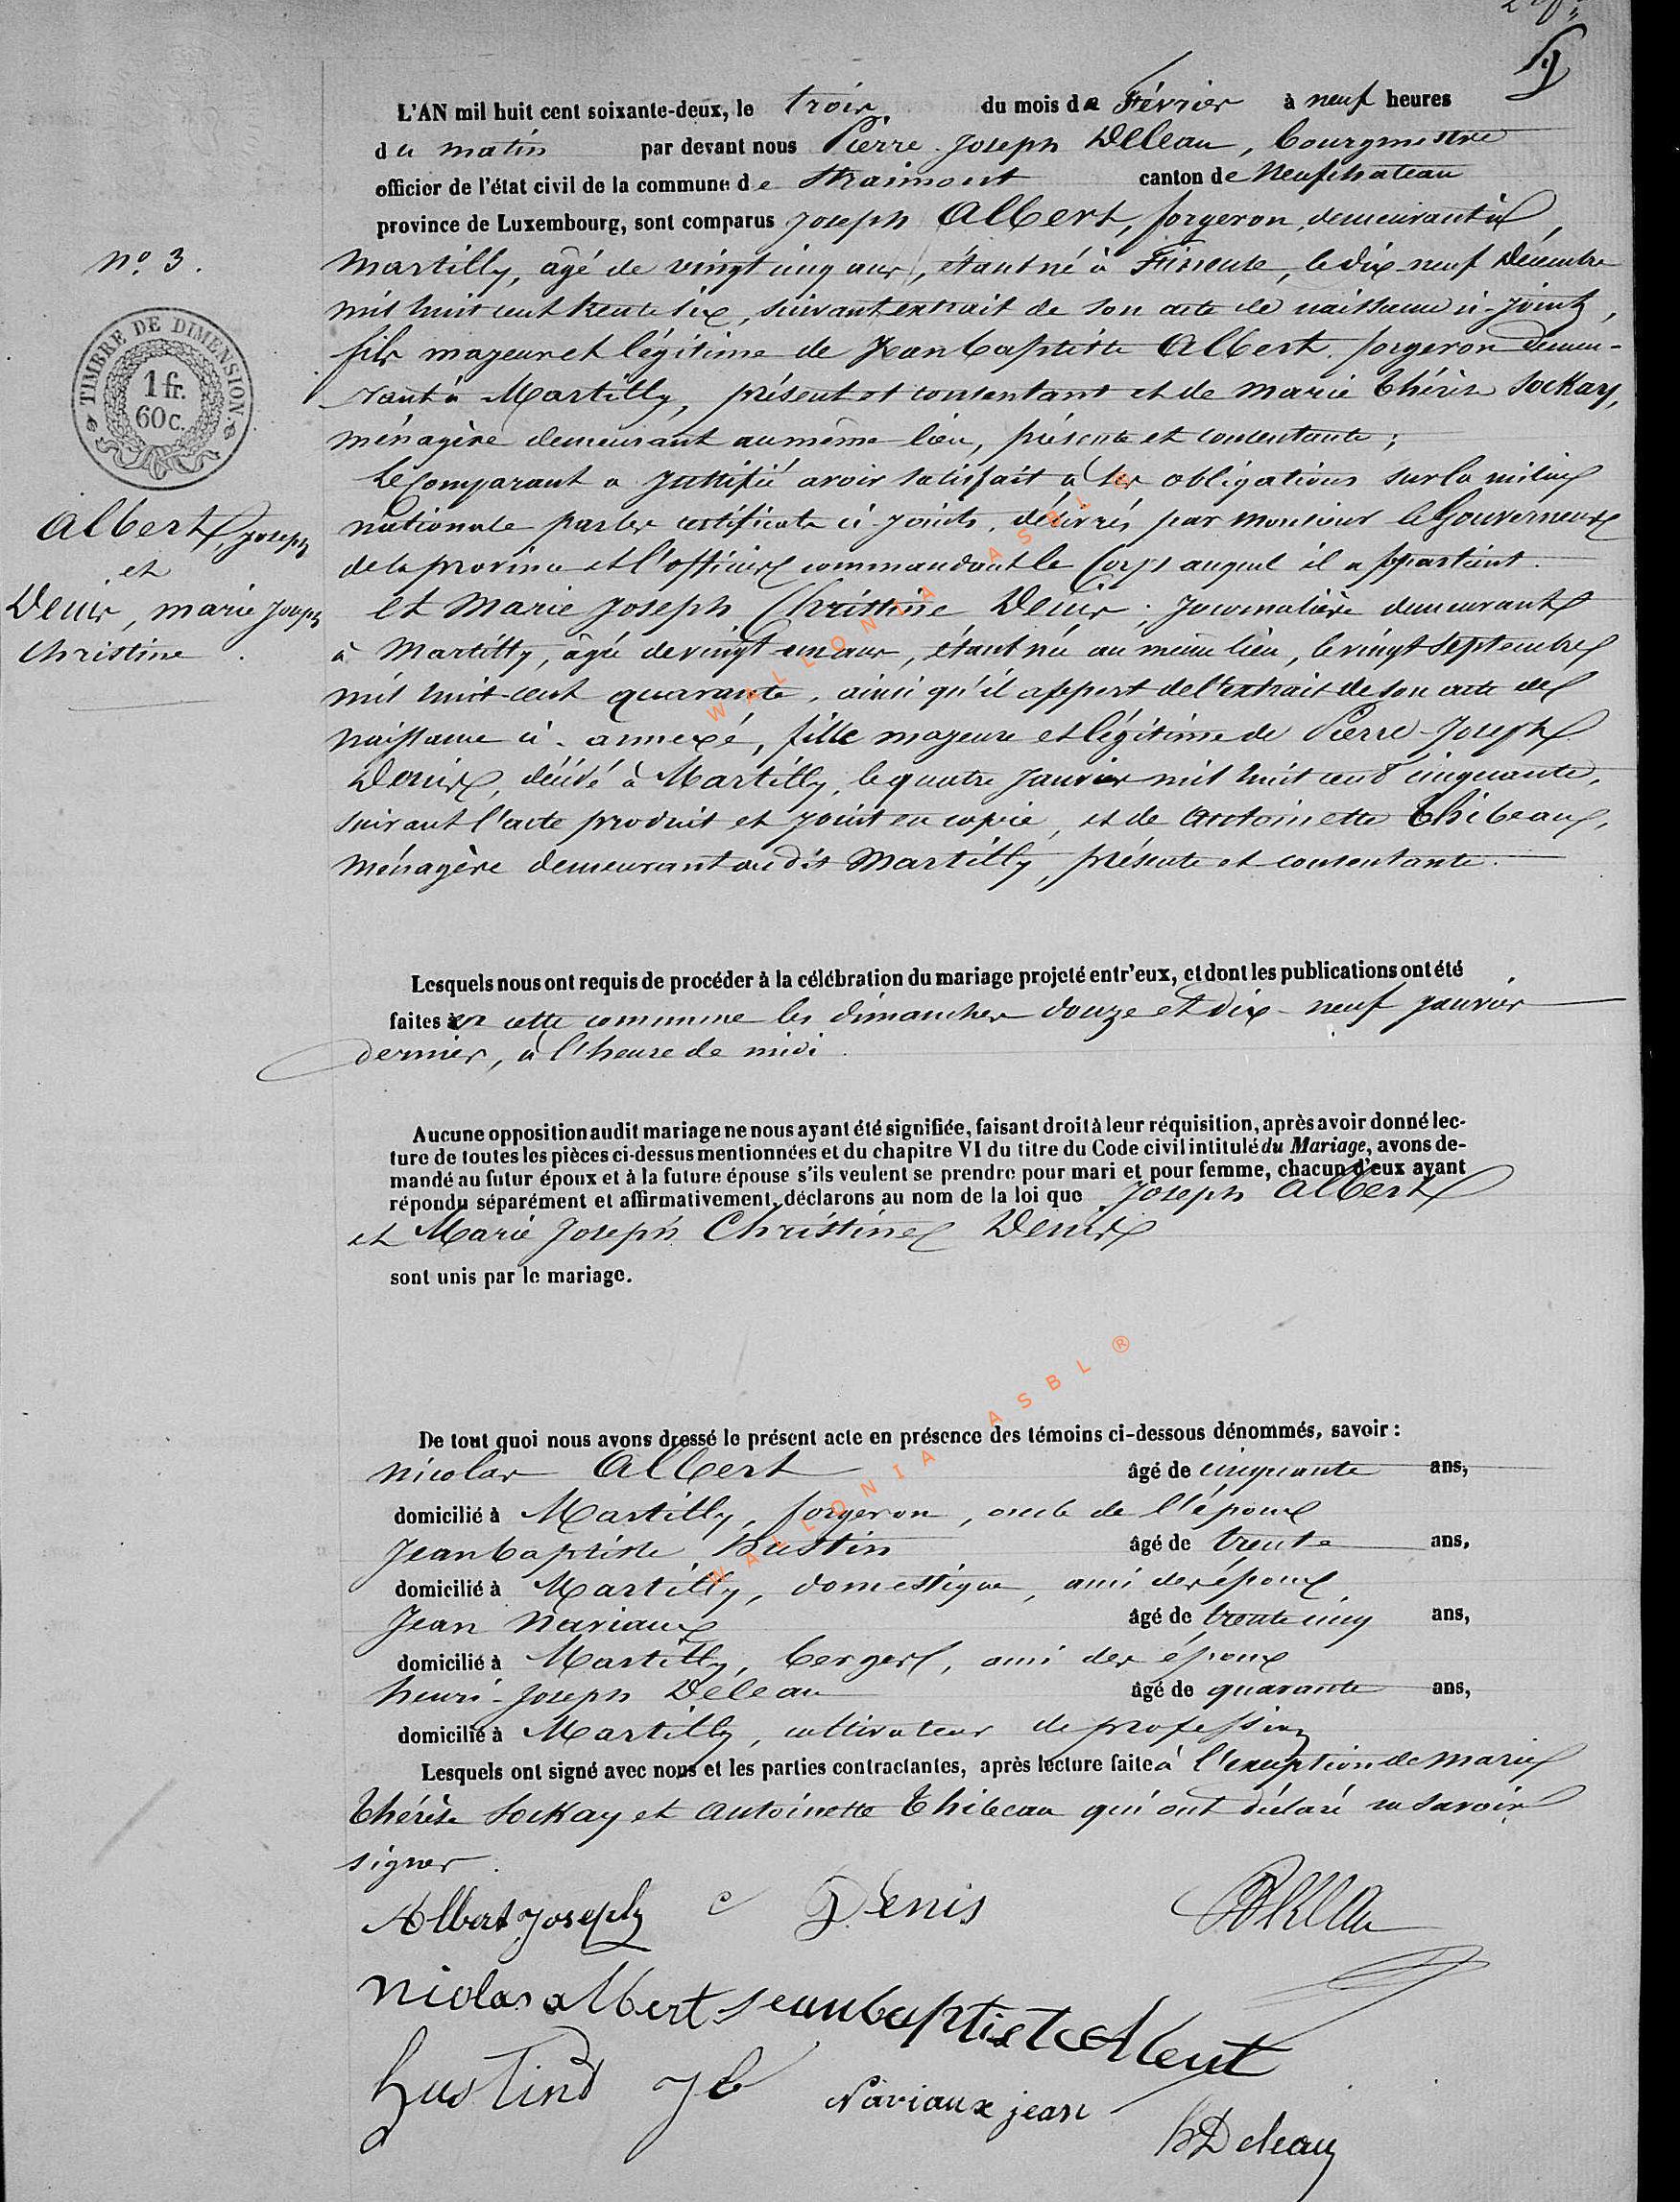 L'AN mil huit cent soixante-deux, le trois du mois de Février à neuf heures
du matin par devant nous Pierre Joseph Deleau, bourgmestre
officier de l'état civil de la commune de Straimont canton de Neufchateau
province de Luxembourg, sont comparus Joseph Albert, forgeron, demeurant à
n° 3.
Martilly, âgé de vingt cinq ans, étant né à le dix-neuf Décembre
mil huit cent trente six, suivant extrait de son acte de naissance ci-joint,
fils majeur et légitime de Jean baptiste Albert, forgeron demeu-
rant à Martilly, présent et consentant et de marie thérèse Sockay,
ménagère demeurant au même lieu, présente et consentante;
TIMBRE DE DIMENSION.
1 fr.
60 c.
Le Comparant a justifié avoir satisfait à ses obligations sur la milice
nationale par les certificats ci-joints, délivrés par monsieur le Gouverneur
de la province et l'officier commandant le Corps auquel il appartient.
Albert, Joseph
et
Denis, marie Joseph
Christine
et Marie Joseph Christine Denis, journalière demeurant
à Martilly, âgée de vingt un ans, étant née au même lieu, le vingt Septembre
mil huit-cent quarante, ainsi qu'il appert de l'extrait de son acte de
naissance ci-annexé, fille majeure et légitime de Pierre-Joseph
Denis, décédé à Martilly, le quatre Janvier mil huit cent cinquante,
suivant l'acte produit et joint en copie, et de Antoinette Thibeau,
ménagère demeurant au dit Martilly, présente et consentante.
Lesquels nous ont requis de procéder à la célébration du mariage projeté entr'eux, et dont les publications ont été
faites en cette commune les dimanches douze et dix-neuf janvier
dernier, à l'heure de midi.
Aucune opposition audit mariage ne nous ayant été signifiée, faisant droit à leur réquisition, après avoir donné lec-
ture de toutes les pièces ci-dessus mentionnées et du chapitre VI du titre du Code civil intitulé du Mariage, avons de-
mandé au futur époux et à la future épouse s'ils veulent se prendre pour mari et pour femme, chacun d'eux ayant
répondu séparément et affirmativement, déclarons au nom de la loi que Joseph Albert
et Marie Joseph Christine Denis
sont unis par le mariage.
De tout quoi nous avons dressé le présent acte en présence des témoins ci-dessous dénommés, savoir :
nicolas Albert âgé de cinquante ans,
domicilié à Martilly, forgeron, oncle de l'époux
Jean baptiste Hustin âgé de trente ans,
domicilié à Martilly, domestique, ami des époux
Jean Naviaux âgé de trente cinq ans,
domicilié à Martilly, berger, ami des époux
henri-Joseph Deleau âgé de quarante ans,
domicilié à Martilly, cultivateur de profession
Lesquels ont signé avec nous et les parties contractantes, après lecture faite à l'exception de Marie
thérèse Sockay et Antoinette Thibeau qui ont déclaré ne savoir
signer.
Albert Joseph C Denis
nicolas albert jeanbaptiste Albert
hustin J b Naviaux jean
h D eleau
WALLONIA ASBL ®
WALLONIA ASBL ®